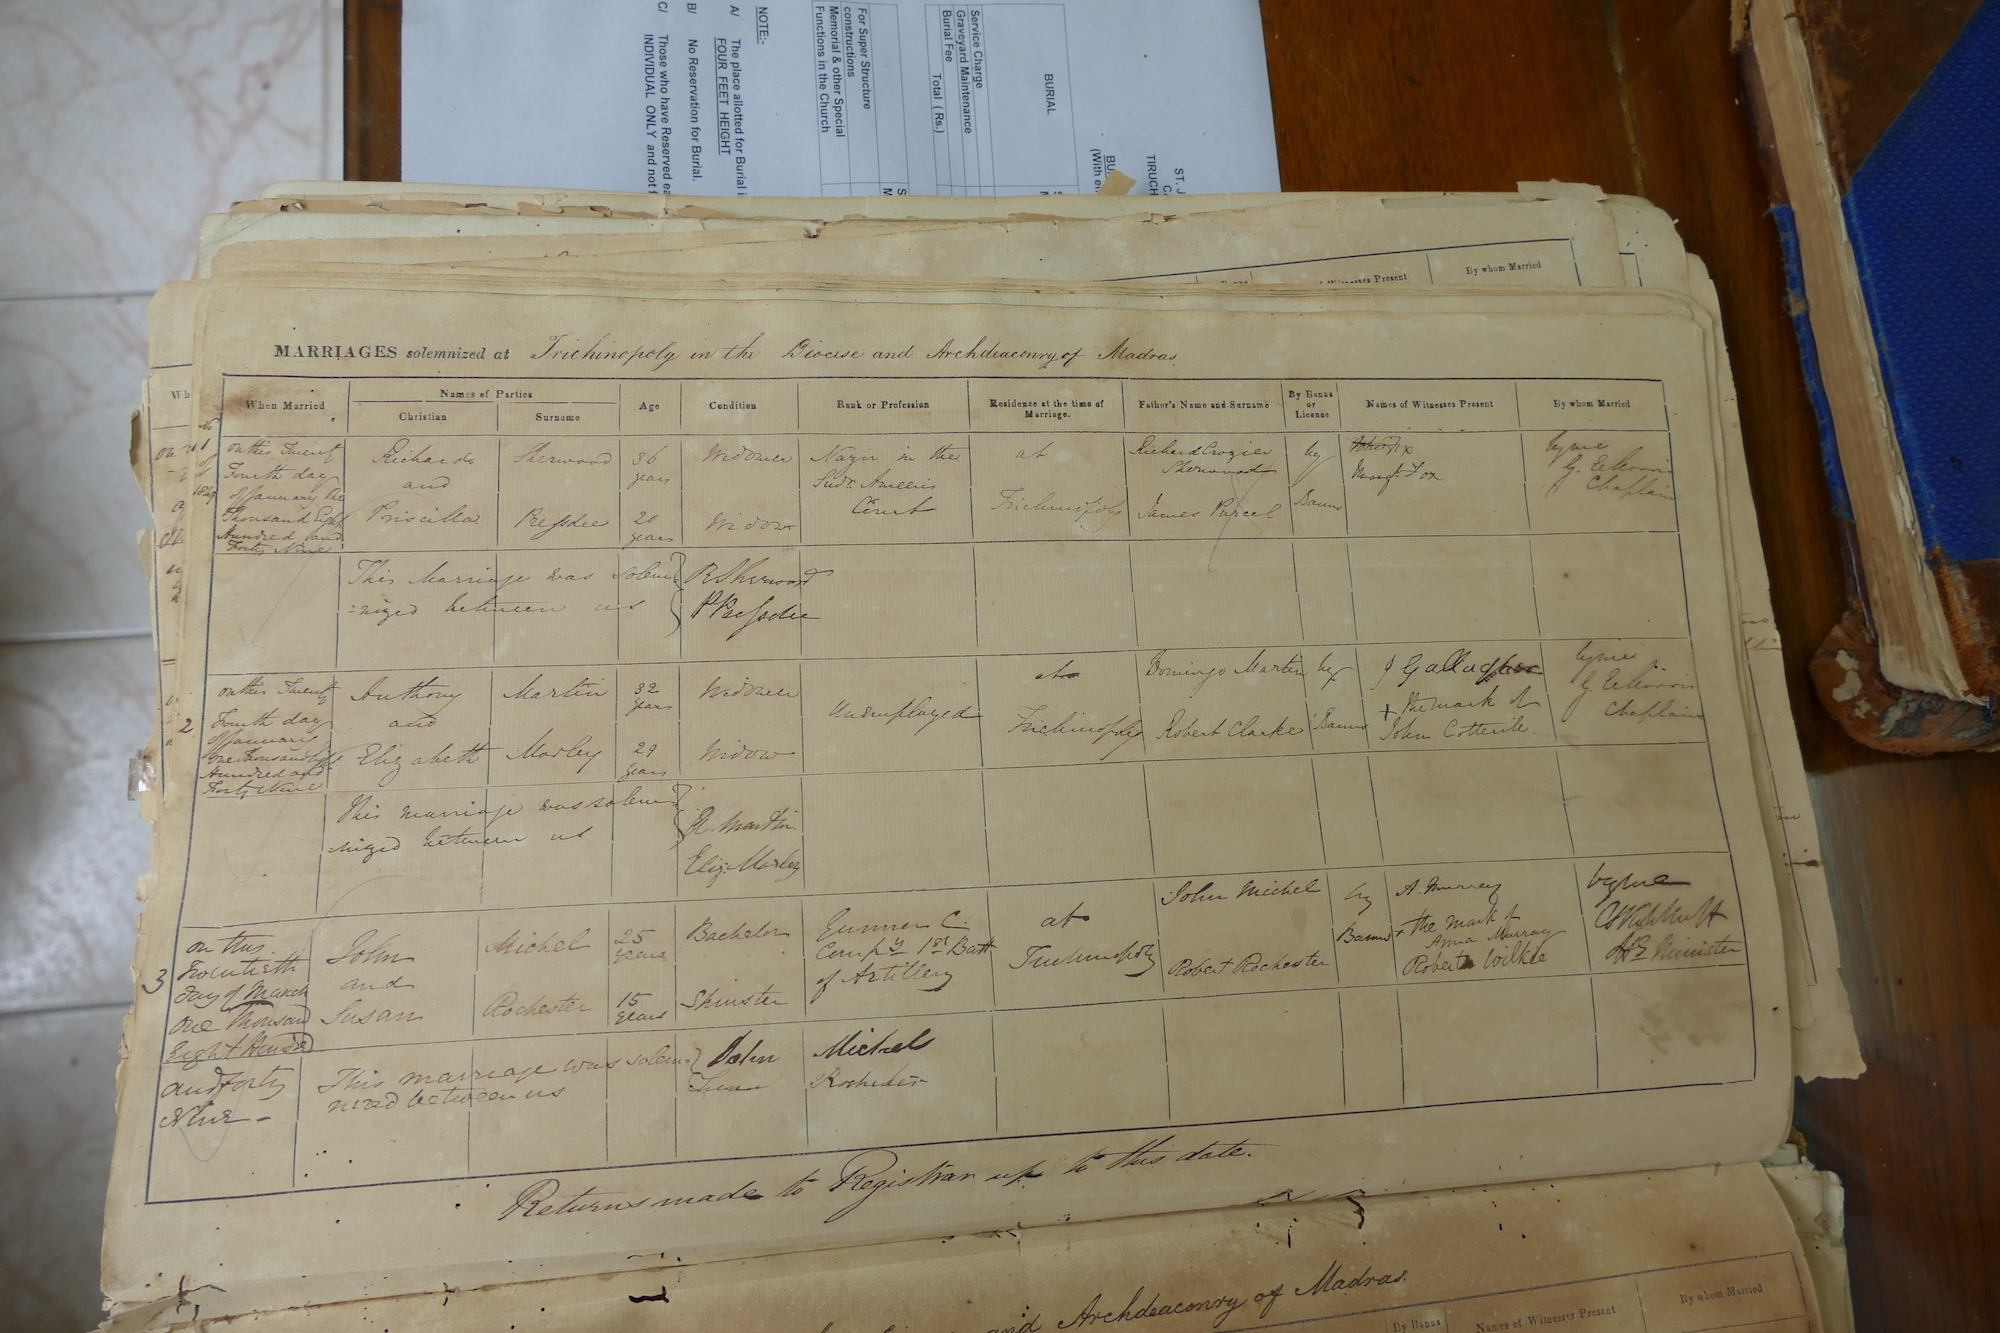 ST. J
TIRUCH
(With en
BURIAL
Service Charge
Graveyard Maintenance
Burial Fee
Total ( Rs.)
For Super Structure
constructions
Memorial & other Special
Functions in the Church
NOTE:-
A/ The place allotted for Burial i
FOUR FEET HEIGHT
B/ No Reservation for Burial.
C/ Those who have Reserved ea
INDIVIDUAL ONLY and not f
Witnesses Present
By whom Married
MARRIAGES solemnized at Trichinopoly in the Diocese and Archdeaconry of Madras
When Married
Names of Parties
Christian
Surname
Age
Condition
Rank or Profession
Residence at the time of Marriage.
Father's Name and Surname
By Banns or License
Names of Witnesses Present
By whom Married
No 1
1849
on this Twenty
Fourth day
of January One
Thousand Eight
Hundred and
Forty Nine
Richard
and
Priscilla
Sherwood
Pressdee
36
years
20
years
Widower
Widow
Nazir in the
Court
at
Trichinopoly
Richard Crozier
Sherwood
James Purcel
by
Banns
by me
Chaplain
This Marriage was solem
=nized between us
R Sherwood
P Pressdee
2
on this Twenty
Fourth day
of January
One thousand Eight
Hundred and
Forty Nine
Anthony
and
Elizabeth
Martin
Morley
32
years
29
years
Widower
Widow
Unemployed
at
Trichinopoly
Domingo Martin
Robert Clarke
by
Banns
J Gallagher
+ the mark of
John Cotterile.
by me
Chaplain
This marriage was solem
=nized between us
A Martin
Eliz: Morley
3
on this
Twentieth
day of March
One Thousand
Eight Hundd
and forty
Nine -
John
and
Susan
Michel
Rochester
25
years
15
years
Bachelor
Spinster
Gunner C
Compy 1st Batt
of Artillery
at
Trichinopoly
John Michel
Robert Rochester
by
Banns
A. Murray
+ the mark of
Anna Murray
Robert Wilkie
by me
Minister
This marriage was solem=
nized between us
John Michel
Susan Rochester
Returns made to Registrar up to this date.
and Archdeaconry of Madras.
By Banns
Names of Witnesses Present
By whom Married